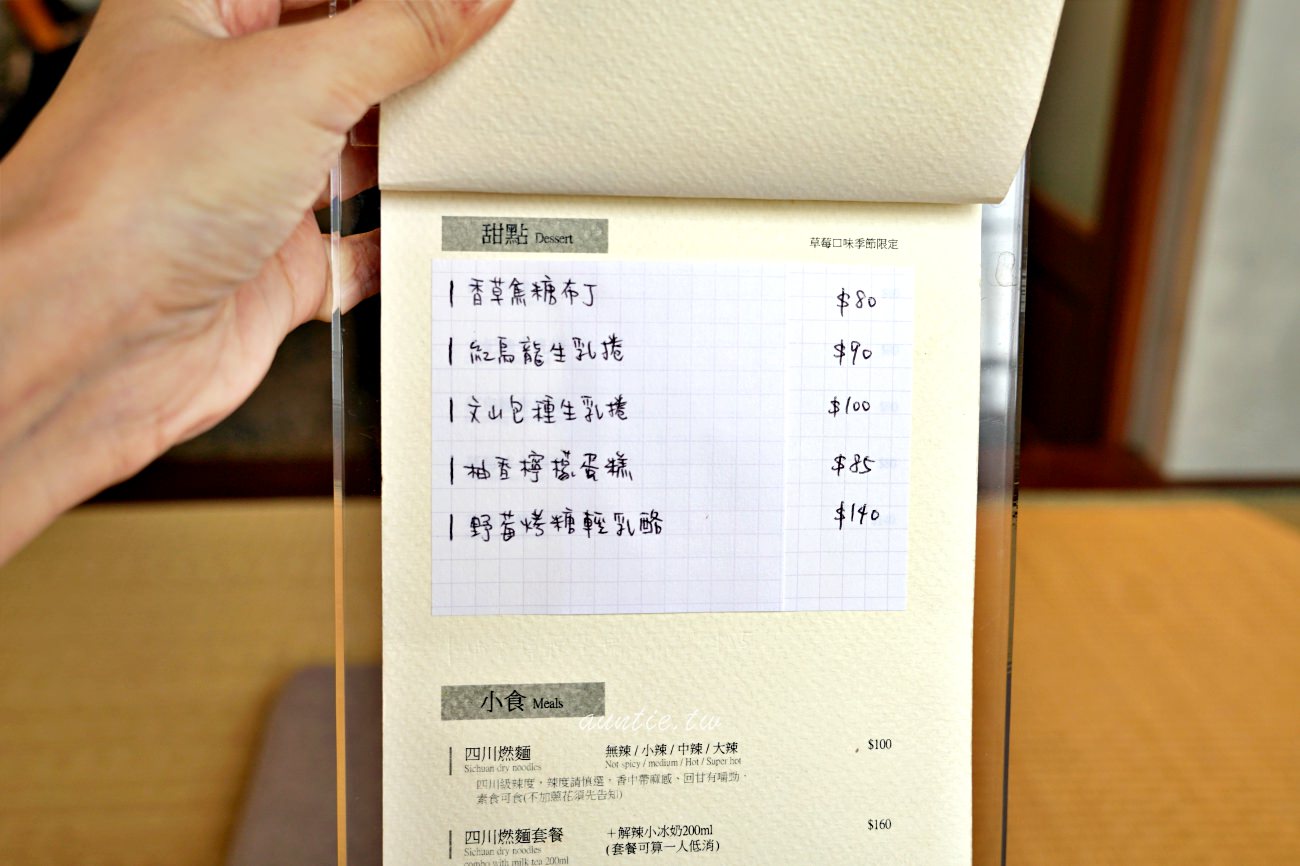 甜點 Dessert
草莓口味季節限定
香草焦糖布丁 $80
紅烏龍生乳捲 $90
文山包種生乳捲 $100
柚香檸檬蛋糕 $85
野莓烤糖輕乳酪 $140
小食 Meals
auntie.tw
四川燃麵 無辣 / 小辣 / 中辣 / 大辣 $100
Sichuan dry noodles Not spicy / medium / Hot / Super hot
四川級辣度，辣度請慎選，香中帶麻感、回甘有嚼勁。
素食可食(不加蔥花須先告知)
四川燃麵套餐 ＋解辣小冰奶200ml $160
Sichuan dry noodles (套餐可算一人低消)
combo with milk tea 200ml